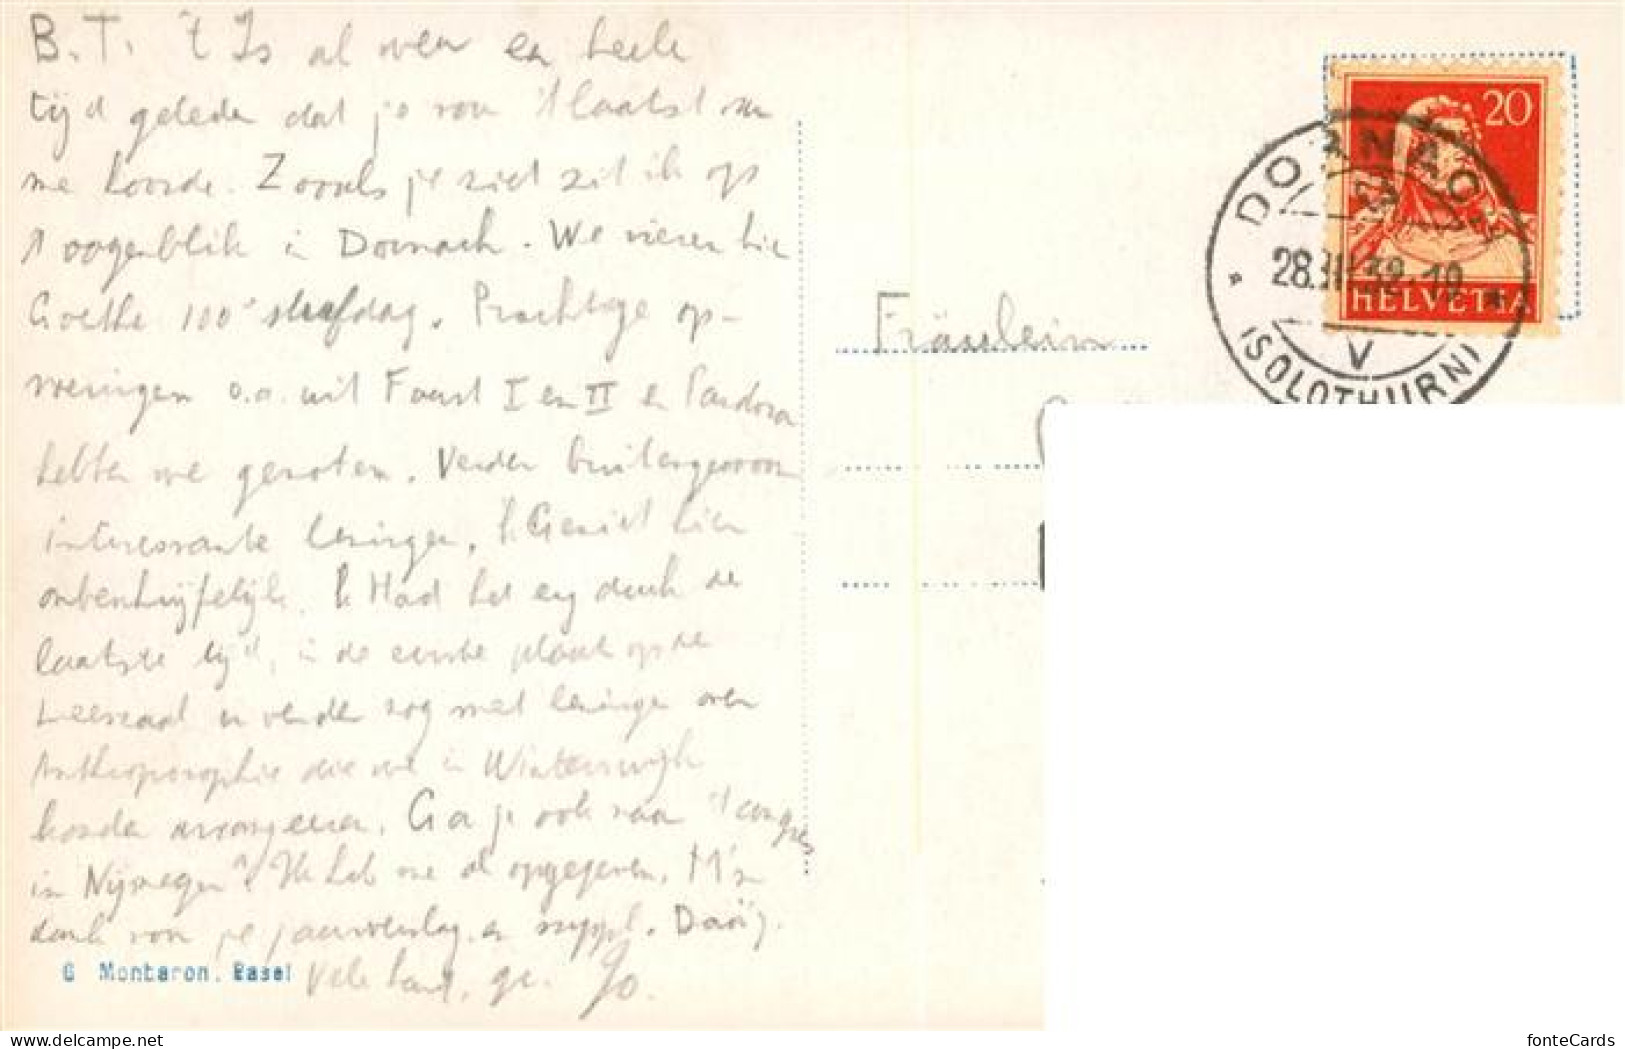 B.T. 't Is al weer en heele
tijd geleden dat je van 't laatst van
me hoorde. Zooals je ziet zit ik op
't oogenblik in Dornach. We vieren hier
Goethe 100e sterfdag. Prachtige op-
voeringen o.a. uit Faust I en II en Pandora
hebben we genoten. Verder buitengewoon
interessante lezingen. 'k Geniet hier
onbeschrijfelijk. 'k Had het erg druk de
laatste tijd, in de eerste plaats op de
leeszaal en verder nog met lezingen over
Anthroposophie die we in Winterswijk
konden arrangeeren. Ga je ook naar 't congres
in Nijmegen? Ik heb me al opgegeven. M'n
dank voor je jaarverslag en suppl.
Vele hart. gr. Jo.
G Montaron. Basel
Fräulein
20
HELVETIA
DORNACH
28.III.32.19
V
(SOLOTHURN)
www.delcampe.net
fonteCards